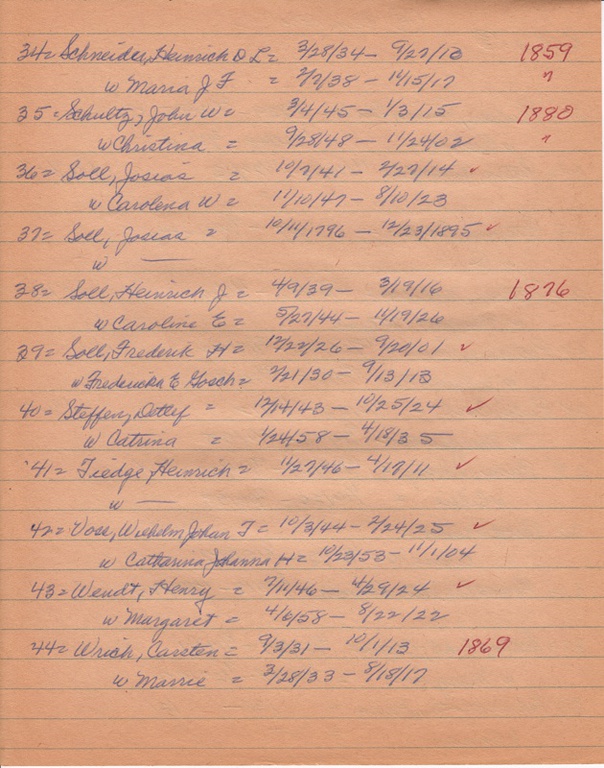 34= Schneider, Heinrich D L= 3/28/34 - 9/27/13 1859
w Maria J F = 2/7/38 - 11/15/17 "
35= Schultz, John W= 3/4/45 - 1/3/15 1880
w Christina = 9/28/48 - 11/24/02 "
36= Soll, Josias = 10/7/41 - 2/27/14 ✓
w Carolena W= 11/10/47 - 8/10/23
37= Soll, Josias = 10/11/1796 - 12/23/1895 ✓
w —
38= Soll, Heinrich J= 4/9/39 - 3/19/16 1876
w Caroline E= 5/27/44 - 11/19/26
39= Soll, Frederik H= 12/22/26 - 9/20/01 ✓
w Fredericka E Gosch= 2/21/30 - 9/13/13
40= Steffen, Detlef = 12/14/43 - 10/25/24 ✓
w Catrina = 1/24/58 - 4/18/35
41= Tiedge, Heinrich= 11/27/46 - 4/17/11 ✓
w —
42= Voss, Wilhelm Johan T= 10/3/44 - 2/24/25 ✓
w Catharina Johanna H= 10/23/53 - 11/1/04
43= Wendt, Henry = 7/11/46 - 4/29/24 ✓
w Margaret = 4/6/58 - 8/22/22
44= Wrich, Carsten= 9/3/31 - 10/1/13 1869
w Marrie = 3/28/33 - 8/18/17